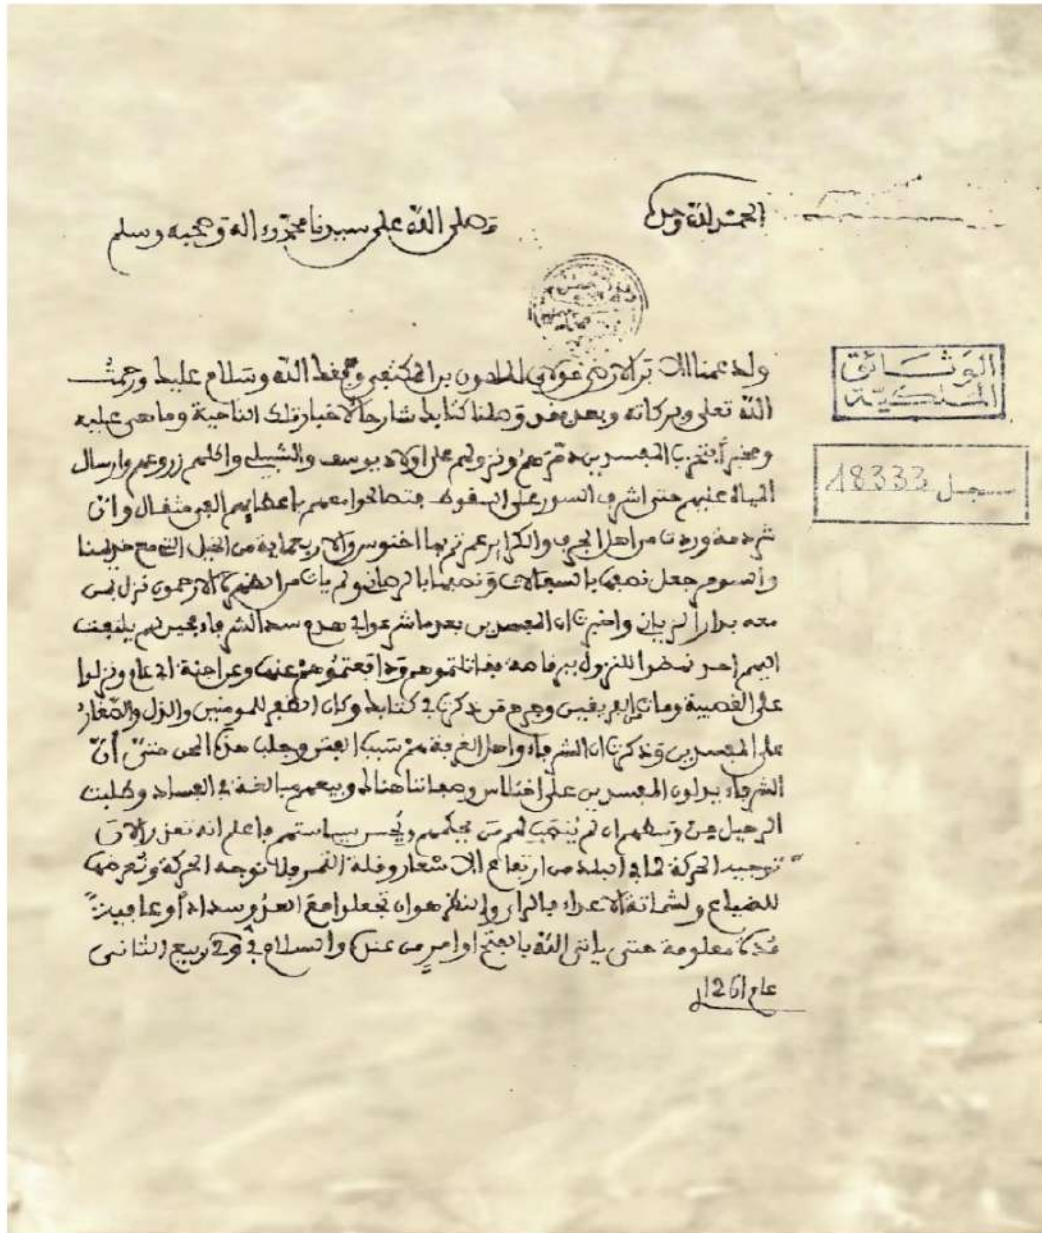 الحمد لله وحده
وصلى الله على سيدنا محمد وءاله وصحبه وسلم
الوثائق
الملكية
سجل 18333
ولد عمنا الارضى مولاي المامون وحفظك الله وسلام عليك ورحمت
الله تعلى وبركاته وبعد فقد وصلنا كتابك شارحا لاخبار تلك الناحية وما هي عليه
المفسدين ونزولهم على اولاد يوسف والشبيلي واكلهم زروعهم وارسال
المياه عليهم حتى اشرف السور على السقوط فتصالحوا معهم باعطايهم الفي مثقال وان
شرذمة وردت من اهل الجرف والاربعماية من الخيل التي مع خديمنا
والسوم جعل نصفها نصفها بالرصاني ولم يات من نزل بمن
معه بدار الريباني واخبرت ان المفسدين بعد ما شرعوا في هدم سد الشرفاء بحين لم يلتفت
اليهم احد نهضوا للنزول فقاتلتموهم وقد عنها ونزلوا
على القصيبة ومات من الفريقين وجرح من ذكرت في كتابك وكان الظفر للمومنين والذل والصغار
على المفسدين وذكرت ان الشرفاء واهل الغرفة هم سبب الفتن وجلب هذه المحن حتى أن
الشرفاء يدلون المفسدين على اختلاس هنالك وبيعهم مبالغة في الفساد وطلبت
الرحيل من وسطهم ان لم لهم من يحكمهم ويحسن سياستهم فاعلم انه تعذر الان
توجيه الحركة لما في البلد من ارتفاع الاسعار وقلة فلا نوجه الحركة ونعرضها
للضياع ولشماتة الاعداء فالراي والنظر هو ان تجعلوا مع العدو سدادا أو عافية
مدة معلومة حتى ياتي الله بالفتح او امر من عنده والسلام في ربيع الثاني
عام 1261